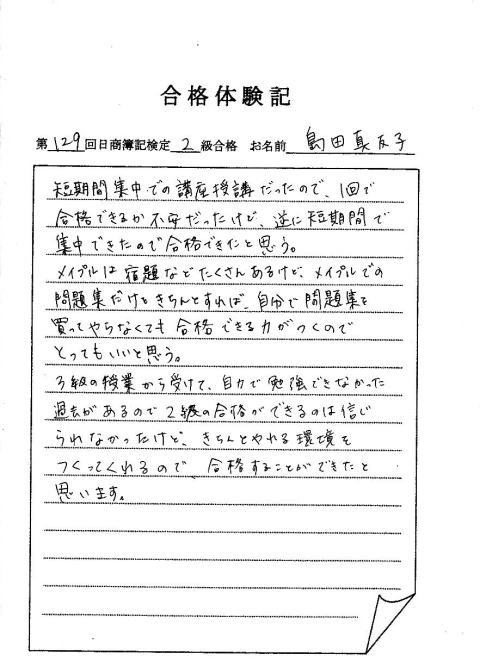 合格体験記
第129回日商簿記検定 2 級合格 お名前 島田真友子
短期間集中での講座授講だったので、1回で
合格できるか不安だったけど、逆に短期間で
集中できたので合格できたと思う。
メイプルは宿題などたくさんあるけど、メイプルでの
問題集だけをきちんとすれば、自分で問題集を
買ってやらなくても合格できる力がつくので
とってもいいと思う。
3級の授業から受けて、自力で勉強できなかった
過去があるので2級の合格ができるのは信じ
られなかったけど、きちんとやれる環境を
つくってくれるので、合格することができたと
思います。